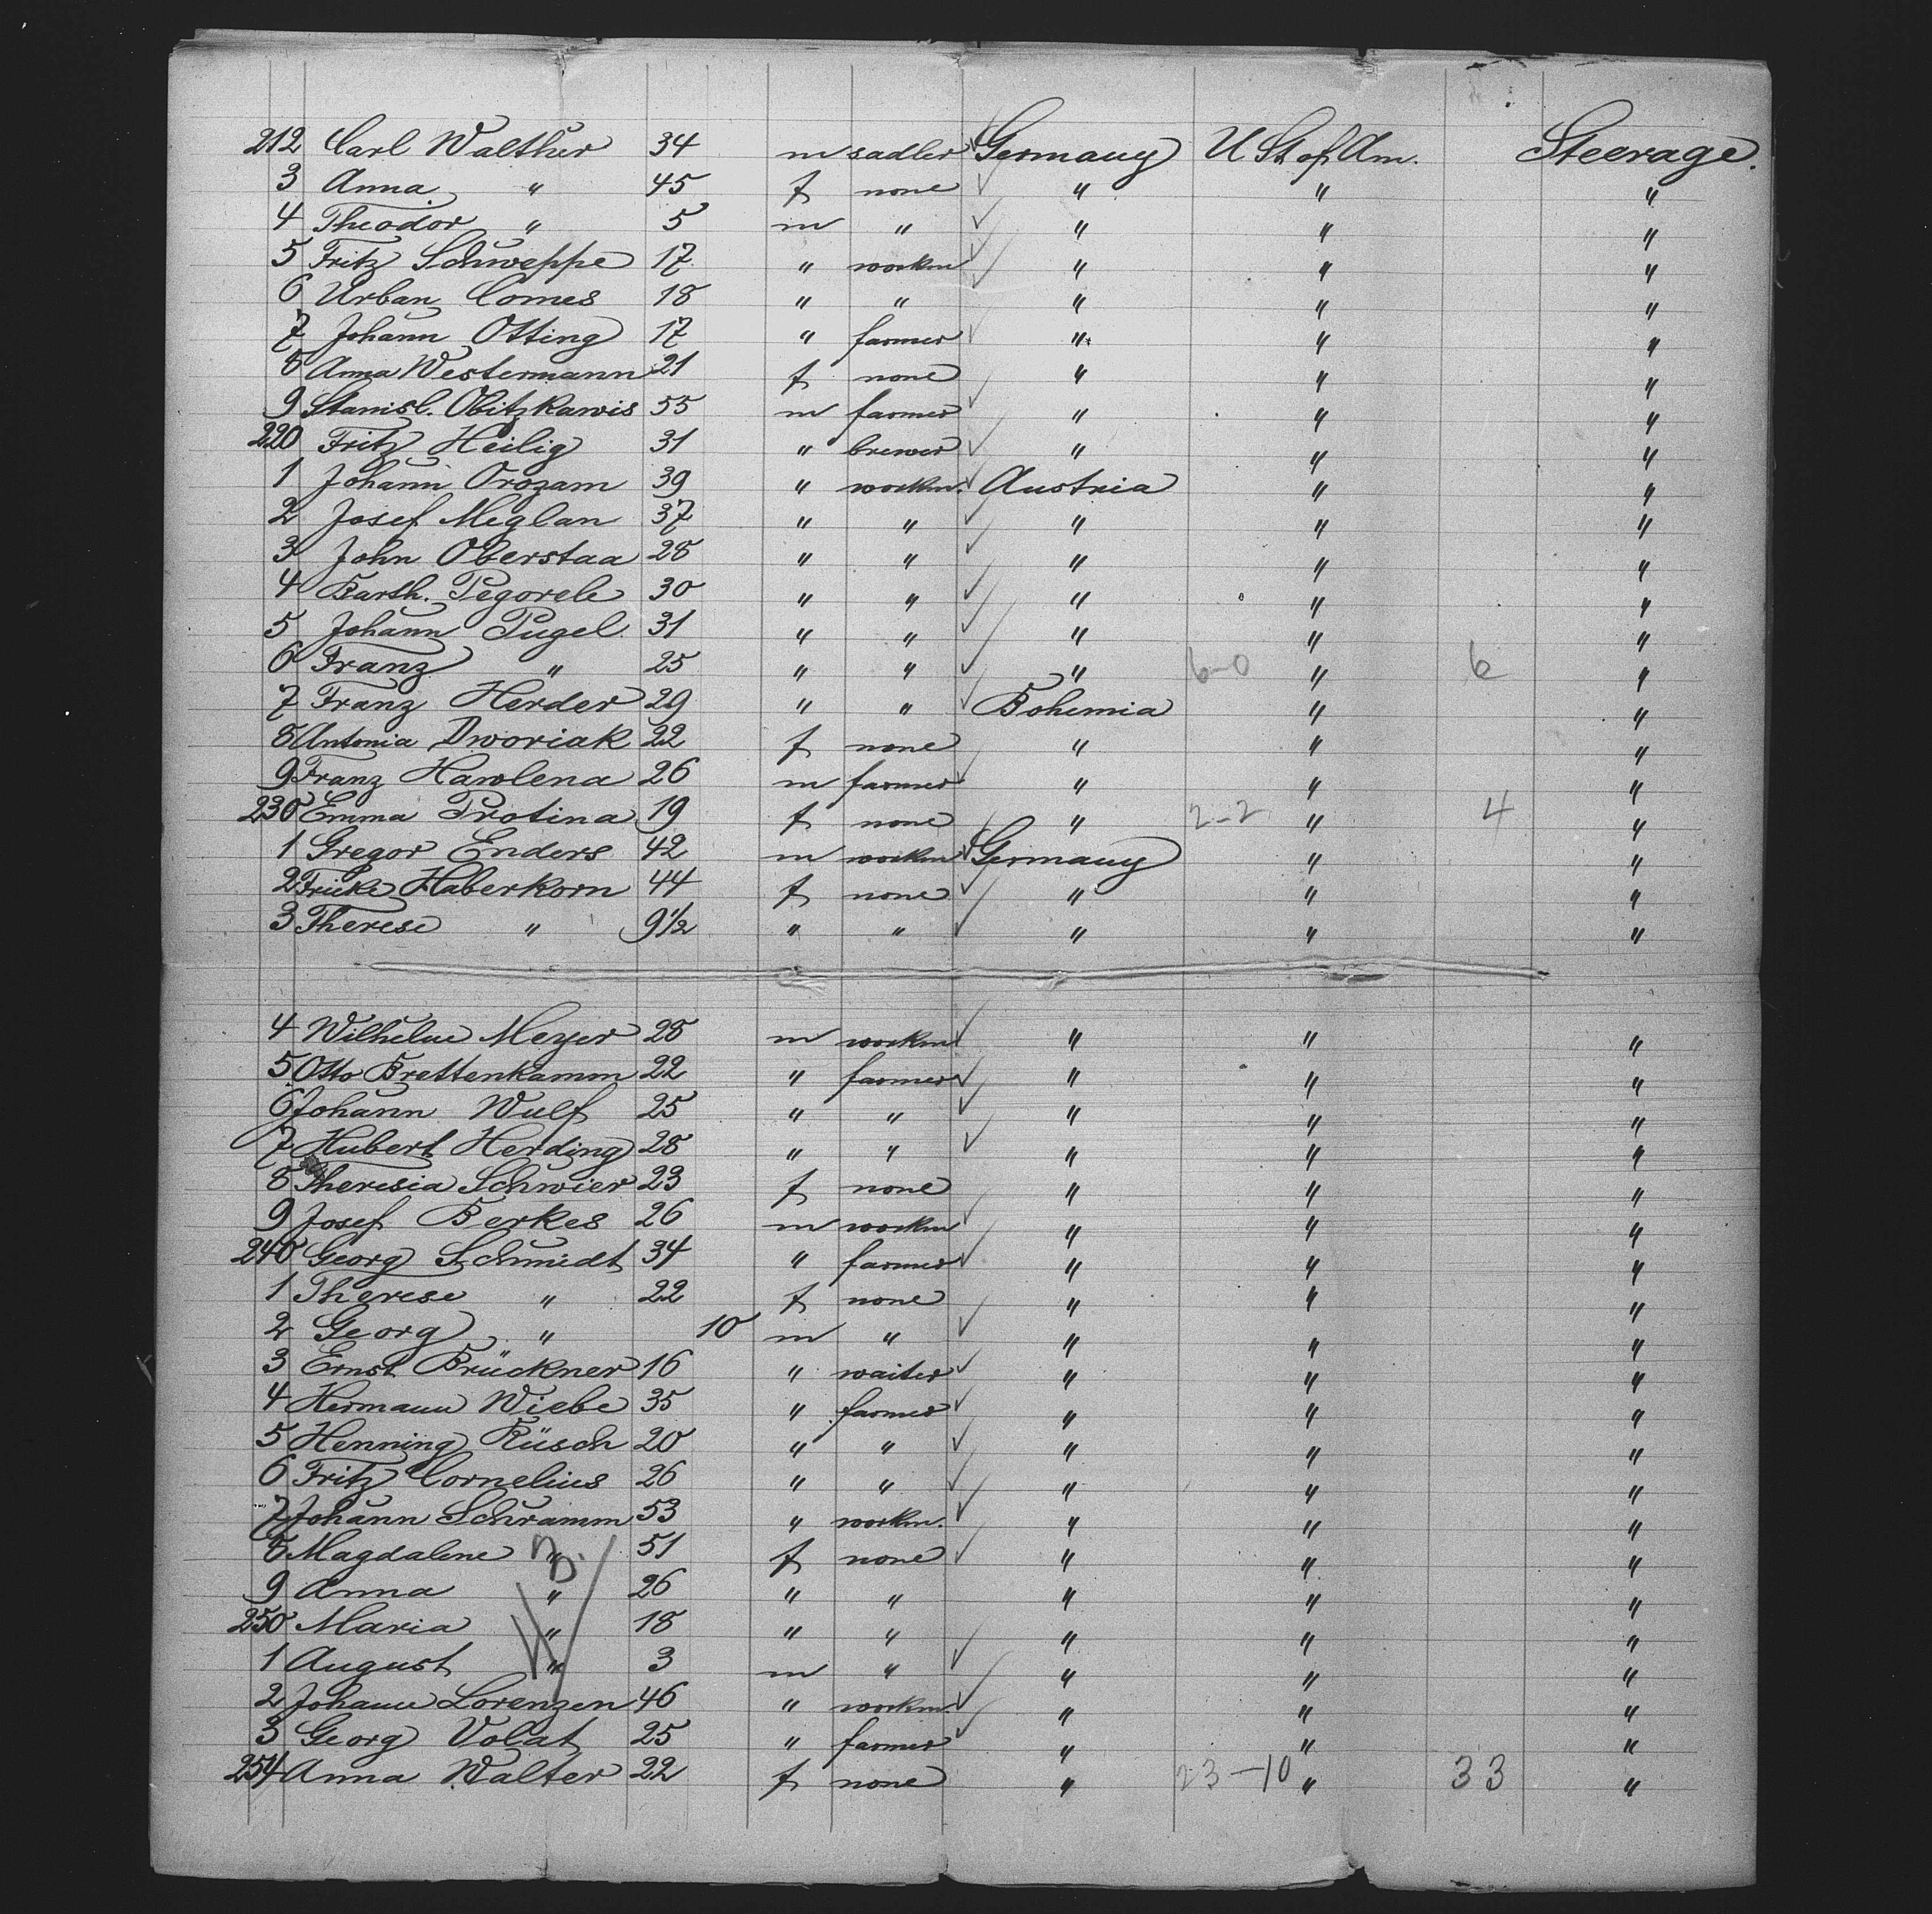 212 Carl Walther 34 m sadler Germany U St of Am. Steerage.
3 Anna " 45 f none " " "
4 Theodor " 5 m " " " "
5 Fritz Schweppe 17 " workm " " "
6 Urban Comes 18 " " " " "
7 Johann Otting 17 " farmer " " "
8 Anna Westermann 21 f none " " "
9 Stanisl. Obitzkawis 55 m farmer " " "
220 Fritz Heilig 31 " brewer " " "
1 Johann Orozam 39 " workm. Austria " "
2 Josef Meglan 37 " " " " "
3 John Oberstaa 28 " " " " "
4 Barth. Pegorele 30 " " " " "
5 Johann Pugel 31 " " " " "
6 Franz " 25 " " " 6-0 " 6 "
7 Franz Herder 29 " " Bohemia " "
8 Antonia Dworiak 22 f none " " "
9 Franz Hawlena 26 m farmer " " "
230 Emma Protina 19 f none " 2-2 " 4 "
1 Gregor Enders 42 m workm Germany " "
2 Fricke Haberkorn 44 f none " " "
3 Therese " 9 1/2 " " " " "
4 Wilhelm Meyer 28 m workm " " "
5 Otto Brettenkamm 22 " farmer " " "
6 Johann Wulf 25 " " " " "
7 Hubert Herding 28 " " " " "
8 Theresia Schwier 23 f none " " "
9 Josef Berkes 26 m workm " " "
240 Georg Schmidt 34 " farmer " " "
1 Therese " 22 f none " " "
2 Georg " 10 m " " " "
3 Ernst Brückner 16 " waiter " " "
4 Hermann Wiebe 35 " farmer " " "
5 Henning Rüsch 20 " " " " "
6 Fritz Cornelius 26 " " " " "
7 Johann Schramm 53 " workm. " " "
8 Magdalene " 51 f none " " "
9 Anna " 26 " " " " "
250 Maria " 18 " " " " "
1 August " 3 m " " " "
2 Johann Lorenzen 46 " workm. " " "
3 Georg Volat 25 " farmer " " "
254 Anna Walter 22 f none " 23-10 " 33 "